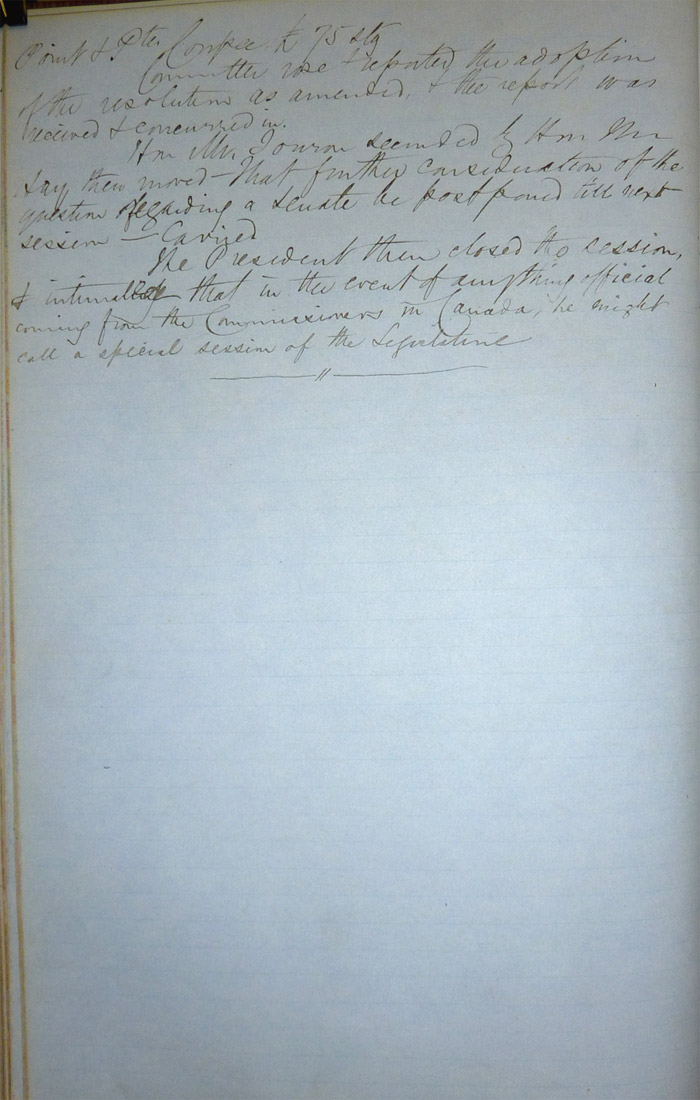 Point & Pte Coupee £ 75 stg
Committee rose & reported the adoption
of the resolution as amended, & the report was
received & concurred in.
Hon Mr. Touron seconded by Hon Mr
Hay then moved – That further consideration of the
question regarding a Senate be postponed till next
session — Carried
The President then closed the session,
& intimated that in the event of anything official
coming from the Commissioners in Canada, he might
call a special session of the Legislature